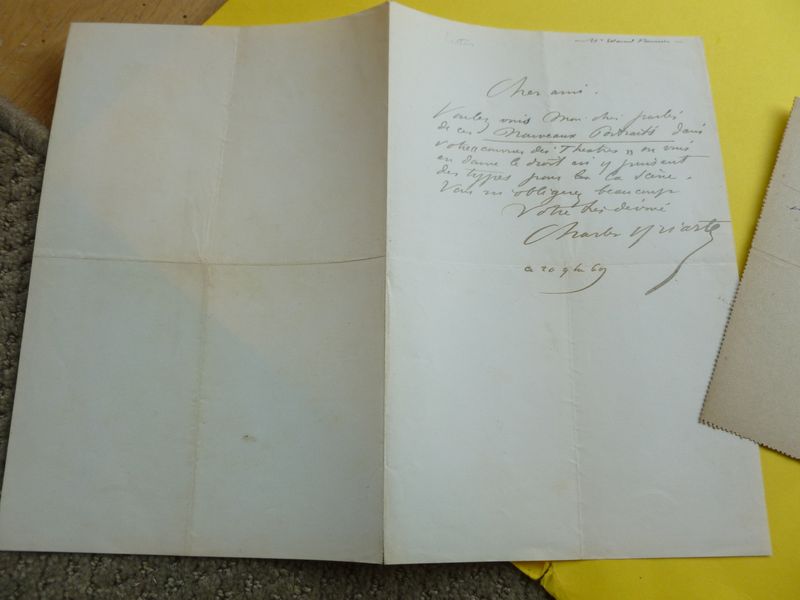 Cher ami.
Voulez vous mon cher parler
de ces Nouveaux Portraits dans
votre courrier des Théâtres on vous
en donne le droit en y prenant
des types pour la Scène.
Vous m'obligerez beaucoup
Votre très dévoué
Charles Yriarte
ce 20 9bre 69